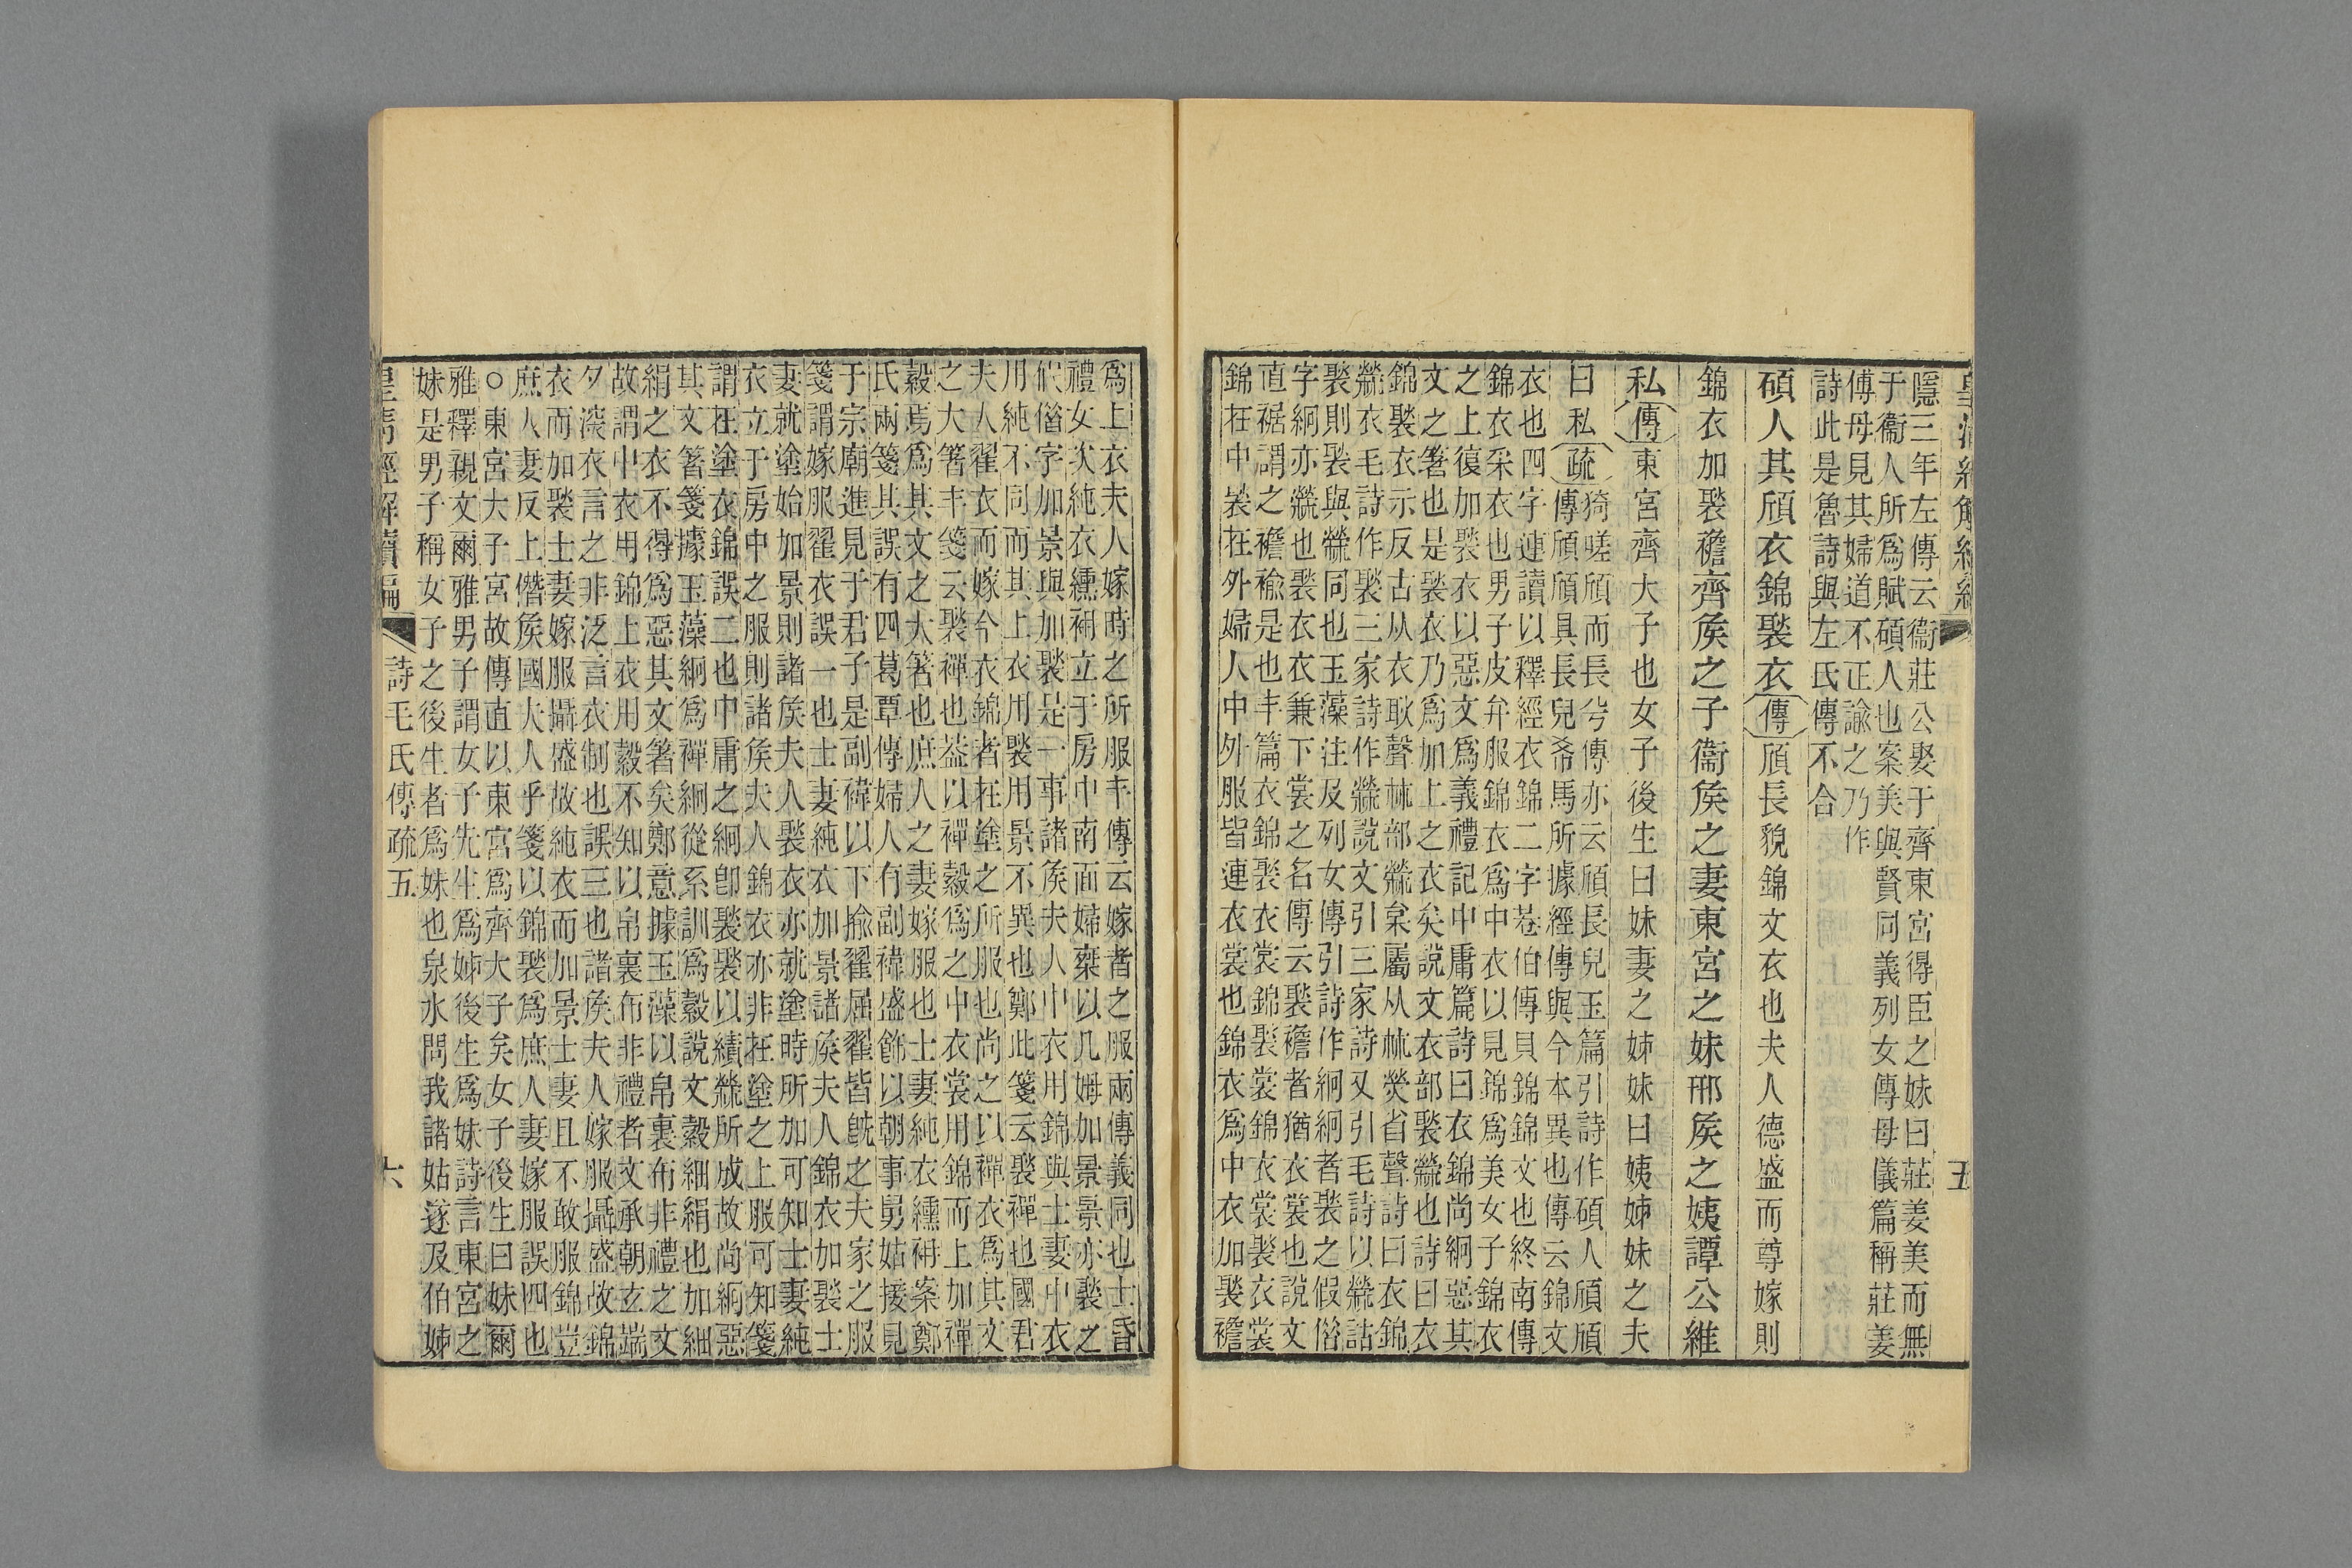 隱三年左傳云衞莊公娶于齊東宮得臣之妹曰莊姜美而無
于衞人所爲賦碩人也案美與賢同義列女傳母儀篇稱莊姜
傅母見其婦道不正諭之乃作
詩此是魯詩與左氏傳不合
碩人其頎衣錦褧衣傳頎長貌錦文衣也夫人德盛而尊嫁則
錦衣加褧襜齊矦之子衞矦之妻東宮之妹邢矦之姨譚公維
私傳東宮齊大子也女子後生曰妹妻之姊妹曰姨姊妹之夫
曰私疏
猗嗟頎而長兮傳亦云頎長皃玉篇引詩作碩人頎頎
傳頎頎具長皃喬馬所據經傳與今本異也傳云錦文
衣也四字連讀以釋經衣錦二字巷伯傳貝錦錦文也終南傳
錦衣采衣也男子皮弁服錦衣爲中衣以見錦爲美女子錦衣
之上復加褧衣以惡文爲義禮記中庸篇詩曰衣錦尚絅惡其
文之箸也是褧衣乃爲加上之衣矣說文衣部褧檾也詩曰衣
錦褧衣示反古从衣耿聲𣏟部檾枲屬从𣏟熒省聲詩曰衣錦
檾衣毛詩作褧三家詩作檾說文引三家詩又引毛詩以檾詁
褧則褧與檾同也玉藻注及列女傳引詩作絅絅者褧之假俗
字絅亦檾也褧衣衣兼下裳之名傳云褧襜者猶衣裳也說文
直裾謂之襜褕是也丰篇衣錦褧衣裳錦褧裳錦衣裳褧衣裳
錦在中裳在外婦人中外服皆連衣裳也錦衣爲中衣加褧襜
五
爲上衣夫人嫁時之所服丰傳云嫁者之服兩傳義同也士昏
禮女次純衣纁袡立于房中南面婦乗以几姆加景景亦褧之
假借字加景與加褧是一事諸矦夫人中衣用錦與士妻中衣
用純不同而其上衣用褧用景不異也鄭此箋云褧禪也國君
夫人翟衣而嫁今衣錦者在塗之所服也尚之以禪衣爲其文
之大箸丰箋云褧禪也葢以禪縠爲之中衣裳用錦而上加禪
縠焉爲其文之大箸也庶人之妻嫁服也士妻純衣纁袡案鄭
氏兩箋其誤有四葛覃傳婦人有副褘盛飾以朝事舅姑接見
于宗廟進見于君子是副褘以下揄翟屈翟皆旣之夫家之服
箋謂嫁服翟衣誤一也士妻純衣加景諸矦夫人錦衣加褧士
妻就塗始加景則諸矦夫人褧衣亦就塗時所加可知士妻純
衣立于房中之服則諸矦夫人錦衣亦非在塗之上服可知箋
謂在塗衣錦誤二也中庸之絅卽褧褧以績檾所成故尚絅惡
其文箸箋據玉藻絅爲禪絅從系訓爲縠說文縠細絹也加細
絹之衣不得爲惡其文箸矣鄭意據玉藻以帛裏布非禮之文
故謂中衣用錦上衣用縠不知以帛裏布非禮者文承朝玄端
夕深衣言之非泛言衣制也誤三也諸矦夫人嫁服攝盛故錦
衣而加褧士妻嫁服攝盛故純衣而加景士妻且不敢服錦豈
庶人妻反上僭矦國夫人乎箋以錦褧爲庶人妻嫁服誤四也
○東宮大子宮故傳直以東宮爲齊大子矣女子後生曰妹爾
雅釋親文爾雅男子謂女子先生爲姊後生爲妹詩言東宮之
妹是男子稱女子之後生者爲妹也泉水問我諸姑遂及伯姊
皇清經解續編
詩毛氏傳疏五
六